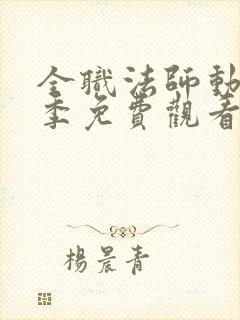 全職法師動
季免費觀看
楊晨青